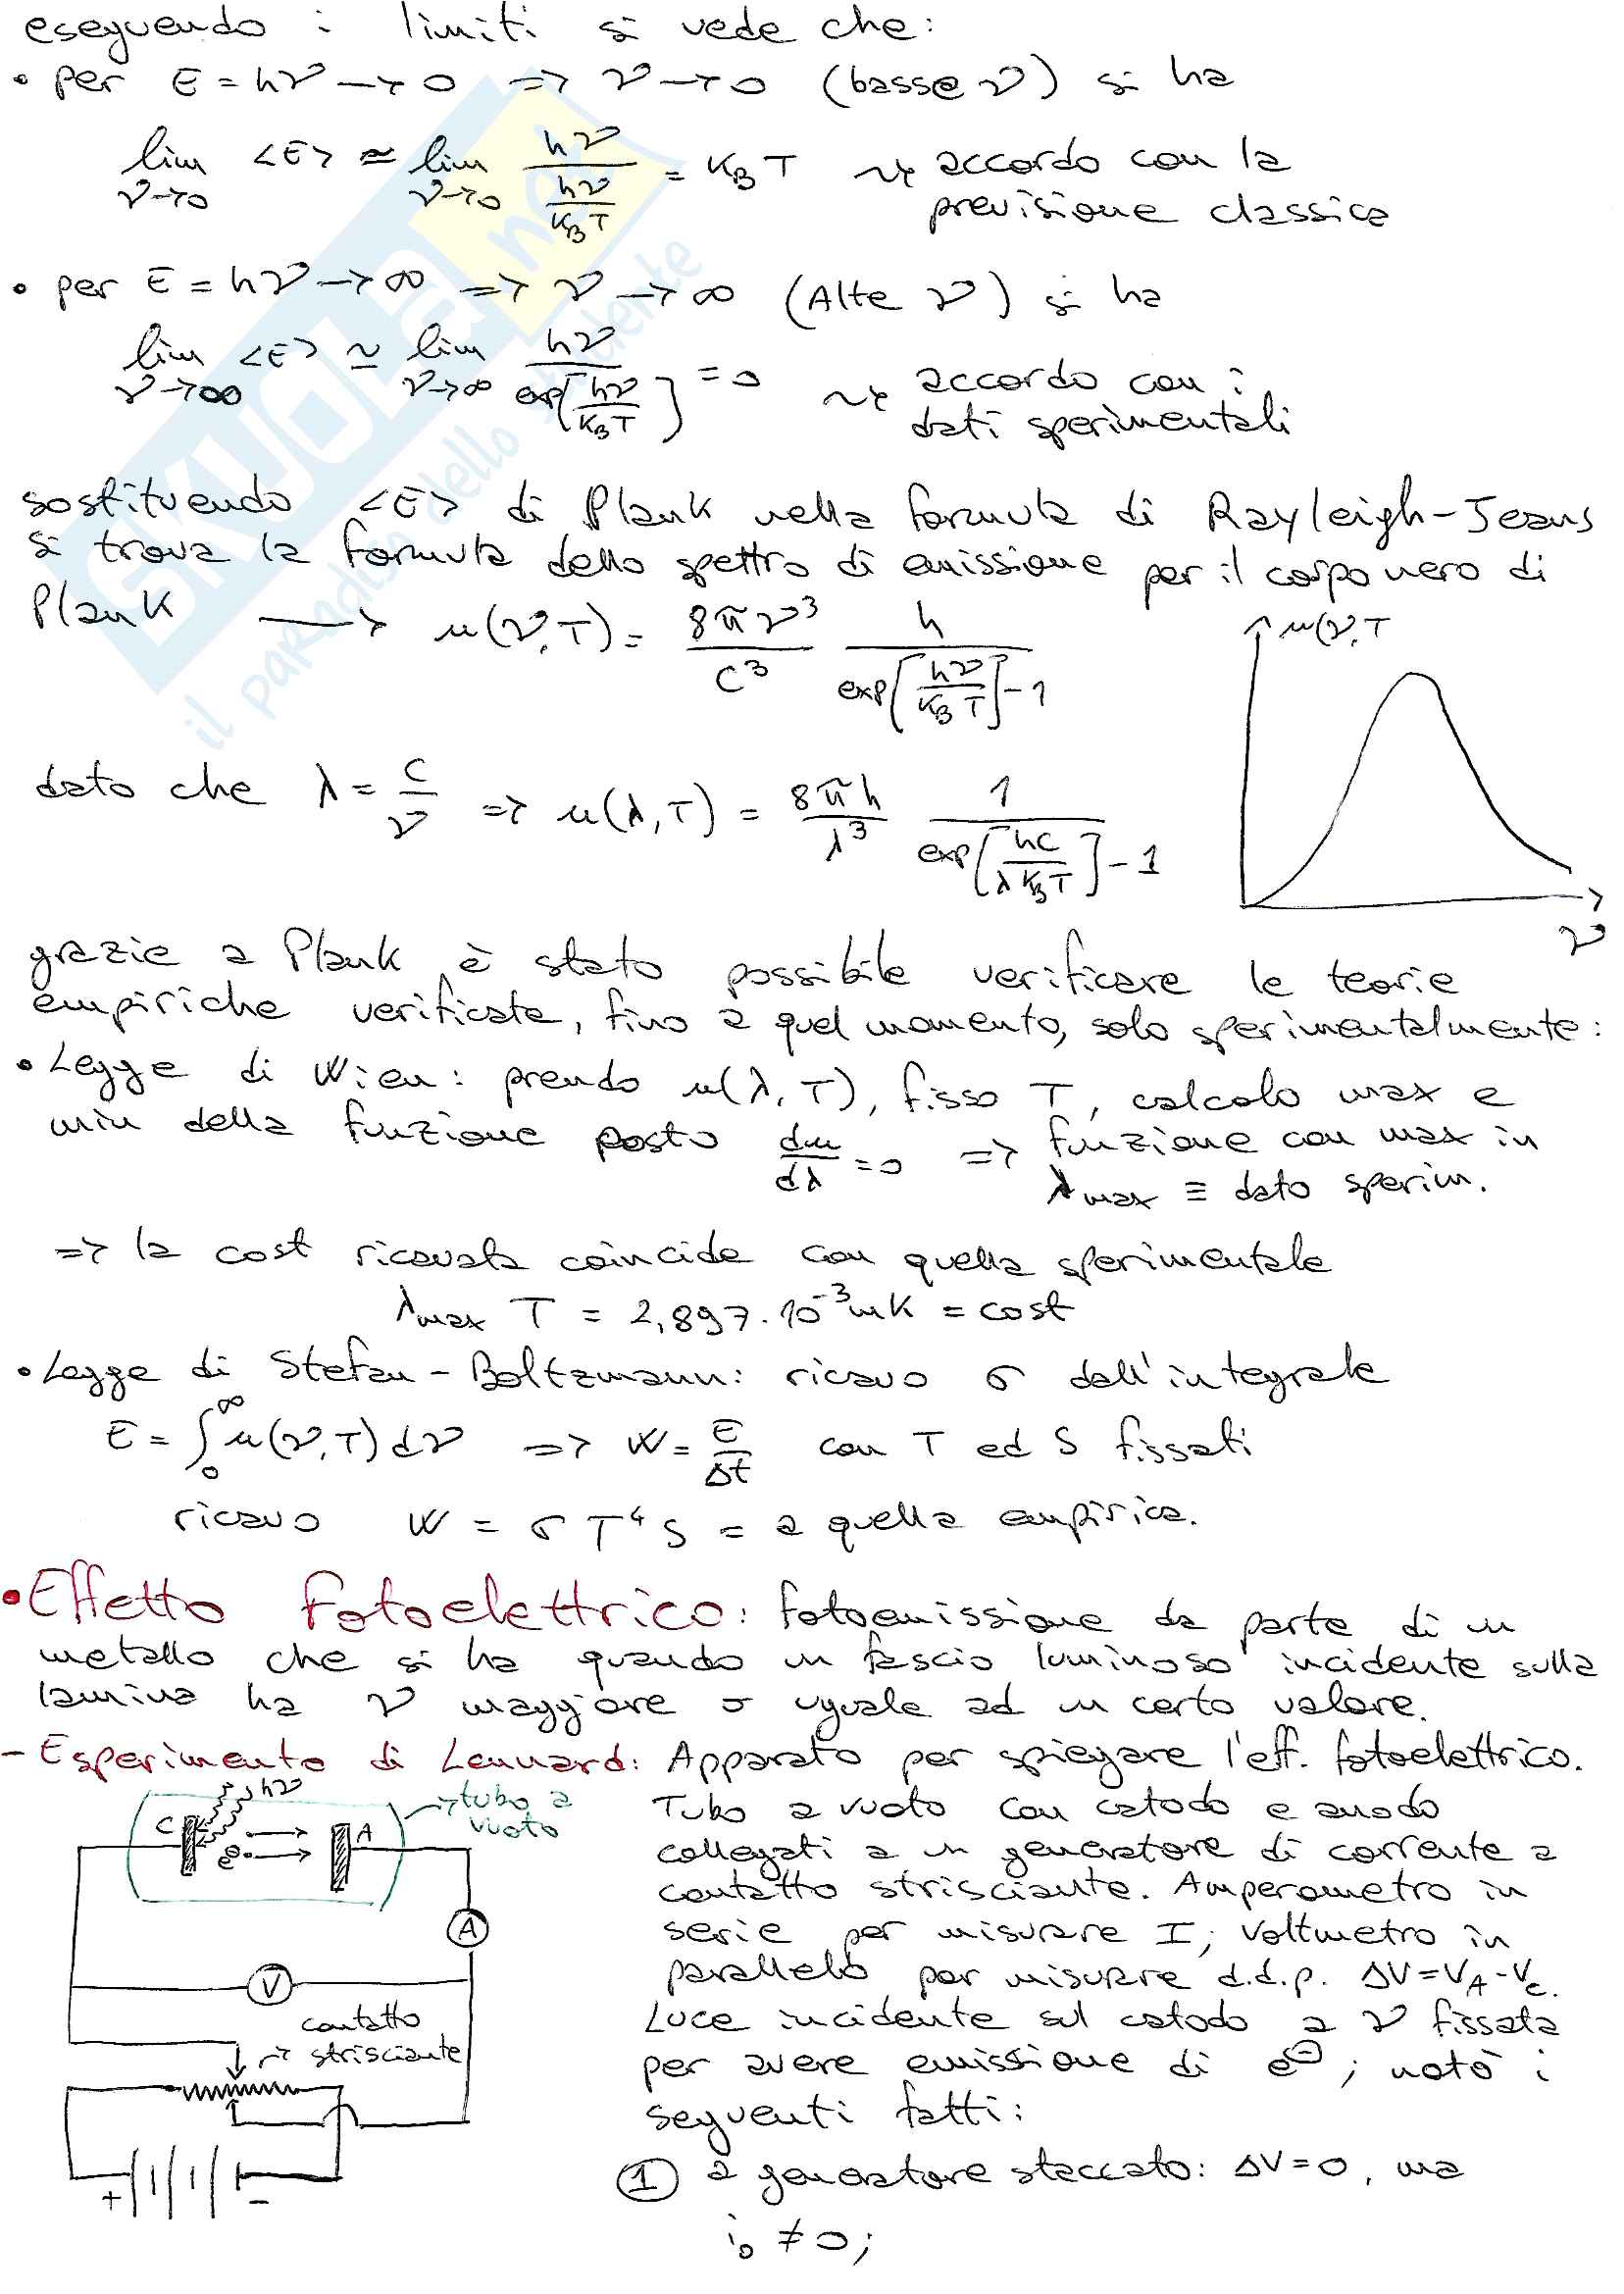 eseguendo i limiti si vede che:
• per E = hν → 0 => ν → 0 (basse ν) si ha
lim ν→0 <E> ≃ lim ν→0 hν / (hν / K_B T) = K_B T ⇝ accordo con la
previsione classica
• per E = hν → ∞ => ν → ∞ (Alte ν) si ha
lim ν→∞ <E> ≃ lim ν→∞ hν / exp[hν / K_B T] = 0 ⇝ accordo con i
dati sperimentali
sostituendo <E> di Plank nella formula di Rayleigh-Jeans
si trova la formula dello spettro di emissione per il corpo nero di
Plank → u(ν,T) = 8πν³ / c³ h / (exp[hν / K_B T] - 1)
u(ν,T
ν
dato che λ = c / ν => u(λ,T) = 8πh / λ³ 1 / (exp[hc / λ K_B T] - 1)
grazie a Plank è stato possibile verificare le teorie
empiriche verificate, fino a quel momento, solo sperimentalmente:
• Legge di Wien: prendo u(λ,T), fisso T, calcolo max e
min della funzione posto du/dλ = 0 => funzione con max in
λmax ≡ dato sperim.
=> la cost ricavata coincide con quella sperimentale
λmax T = 2,897·10⁻³ mK = cost
• Legge di Stefan-Boltzmann: ricavo σ dall'integrale
E = ∫₀^∞ u(ν,T) dν => W = E/Δt con T ed S fissati
ricavo W = σ T⁴ S = a quella empirica.
• Effetto Fotoelettrico: fotoemissione da parte di un
metallo che si ha quando un fascio luminoso incidente sulla
lamina ha ν maggiore o uguale ad un certo valore.
- Esperimento di Lennard: Apparato per spiegare l'eff. fotoelettrico.
Tubo a vuoto con catodo e anodo
collegati a un generatore di corrente a
contatto strisciante. Amperometro in
serie per misurare I; Voltmetro in
parallelo per misurare d.d.p. ΔV = V_A - V_C.
Luce incidente sul catodo a ν fissata
per avere emissione di e⊖; notò i
seguenti fatti:
① a generatore staccato: ΔV = 0, ma
i₀ ≠ 0;
hν
→ tubo a
vuoto
C
A
e⊖
A
V
contatto
strisciante
+
-
SKUOLA.net
il paradiso dello studente